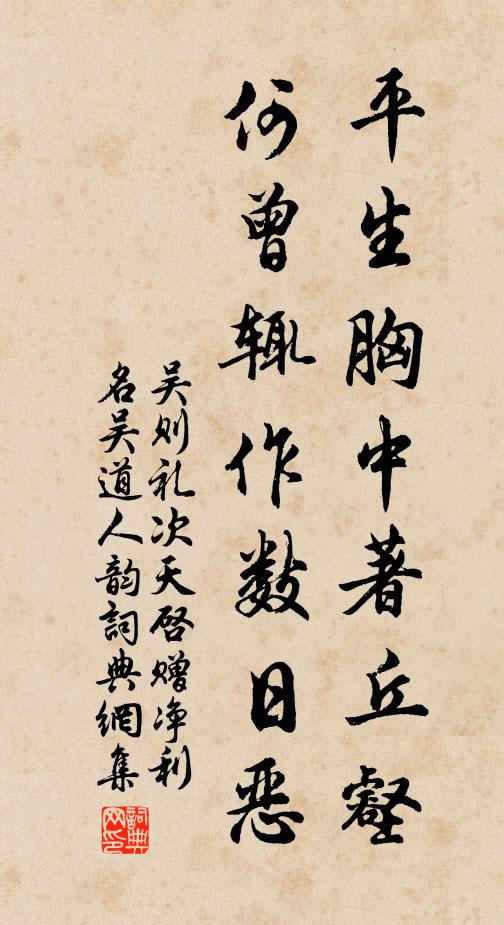 平生胸中著丘壑
何曾辄作数日恶
吴则礼次天启赠净利
名吴道人韵词典網集
詞典网印